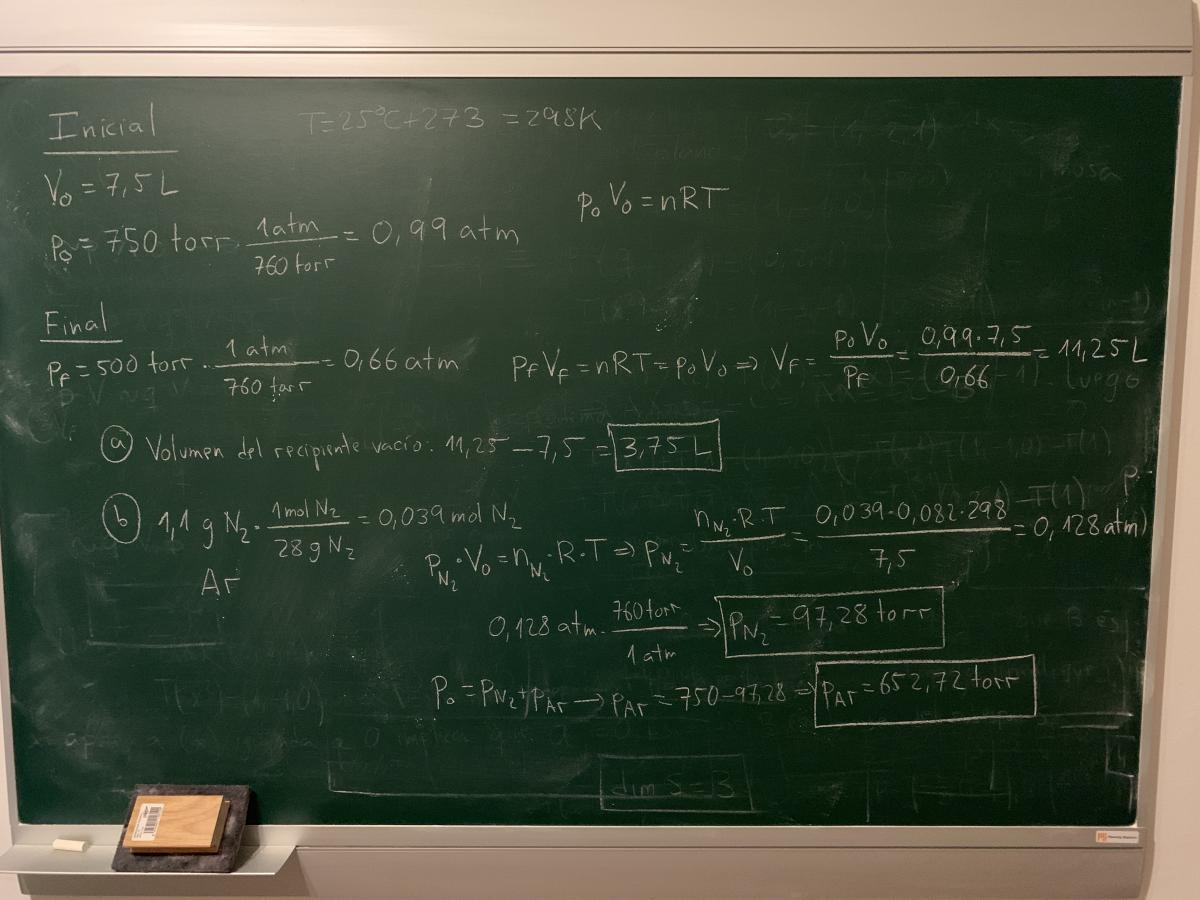 Inicial
T=25°C+273 = 298K
V₀ = 7,5 L
p₀ V₀ = nRT
P₀ = 750 torr · 1 atm / 760 torr = 0,99 atm
Final
P_F = 500 torr · 1 atm / 760 torr = 0,66 atm
P_F V_F = nRT = p₀ V₀ ⇒ V_F = p₀ V₀ / P_F = 0,99·7,5 / 0,66 = 11,25 L
ⓐ Volumen del recipiente vacío: 11,25 – 7,5 = 3,75 L
ⓑ 1,1 g N₂ · 1 mol N₂ / 28 g N₂ = 0,039 mol N₂
Ar
P_N₂ · V₀ = n_N₂ · R · T ⇒ P_N₂ = n_N₂ · R · T / V₀ = 0,039 · 0,082 · 298 / 7,5 = 0,128 atm
0,128 atm · 760 torr / 1 atm ⇒ P_N₂ = 97,28 torr
P₀ = P_N₂ + P_Ar → P_Ar = 750 – 97,28 ⇒ P_Ar = 652,72 torr
dim S = 3